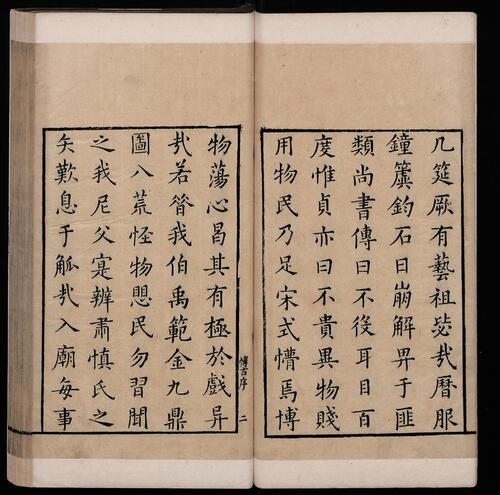 几筵厥有藝祖毖㢤曆服
鐘簴鈞石日崩解畀于匪
類尚書傳曰不役耳目百
度惟貞亦曰不貴異物賤
用物民乃足宋式懵焉博
博古序 二
物蕩心曷其有極於戲异
㢤若我伯禹範金九鼎
圖八荒怪物民勿習聞
之我尼父寔辨肅慎氏之
矣歎息于觚㢤入廟每事